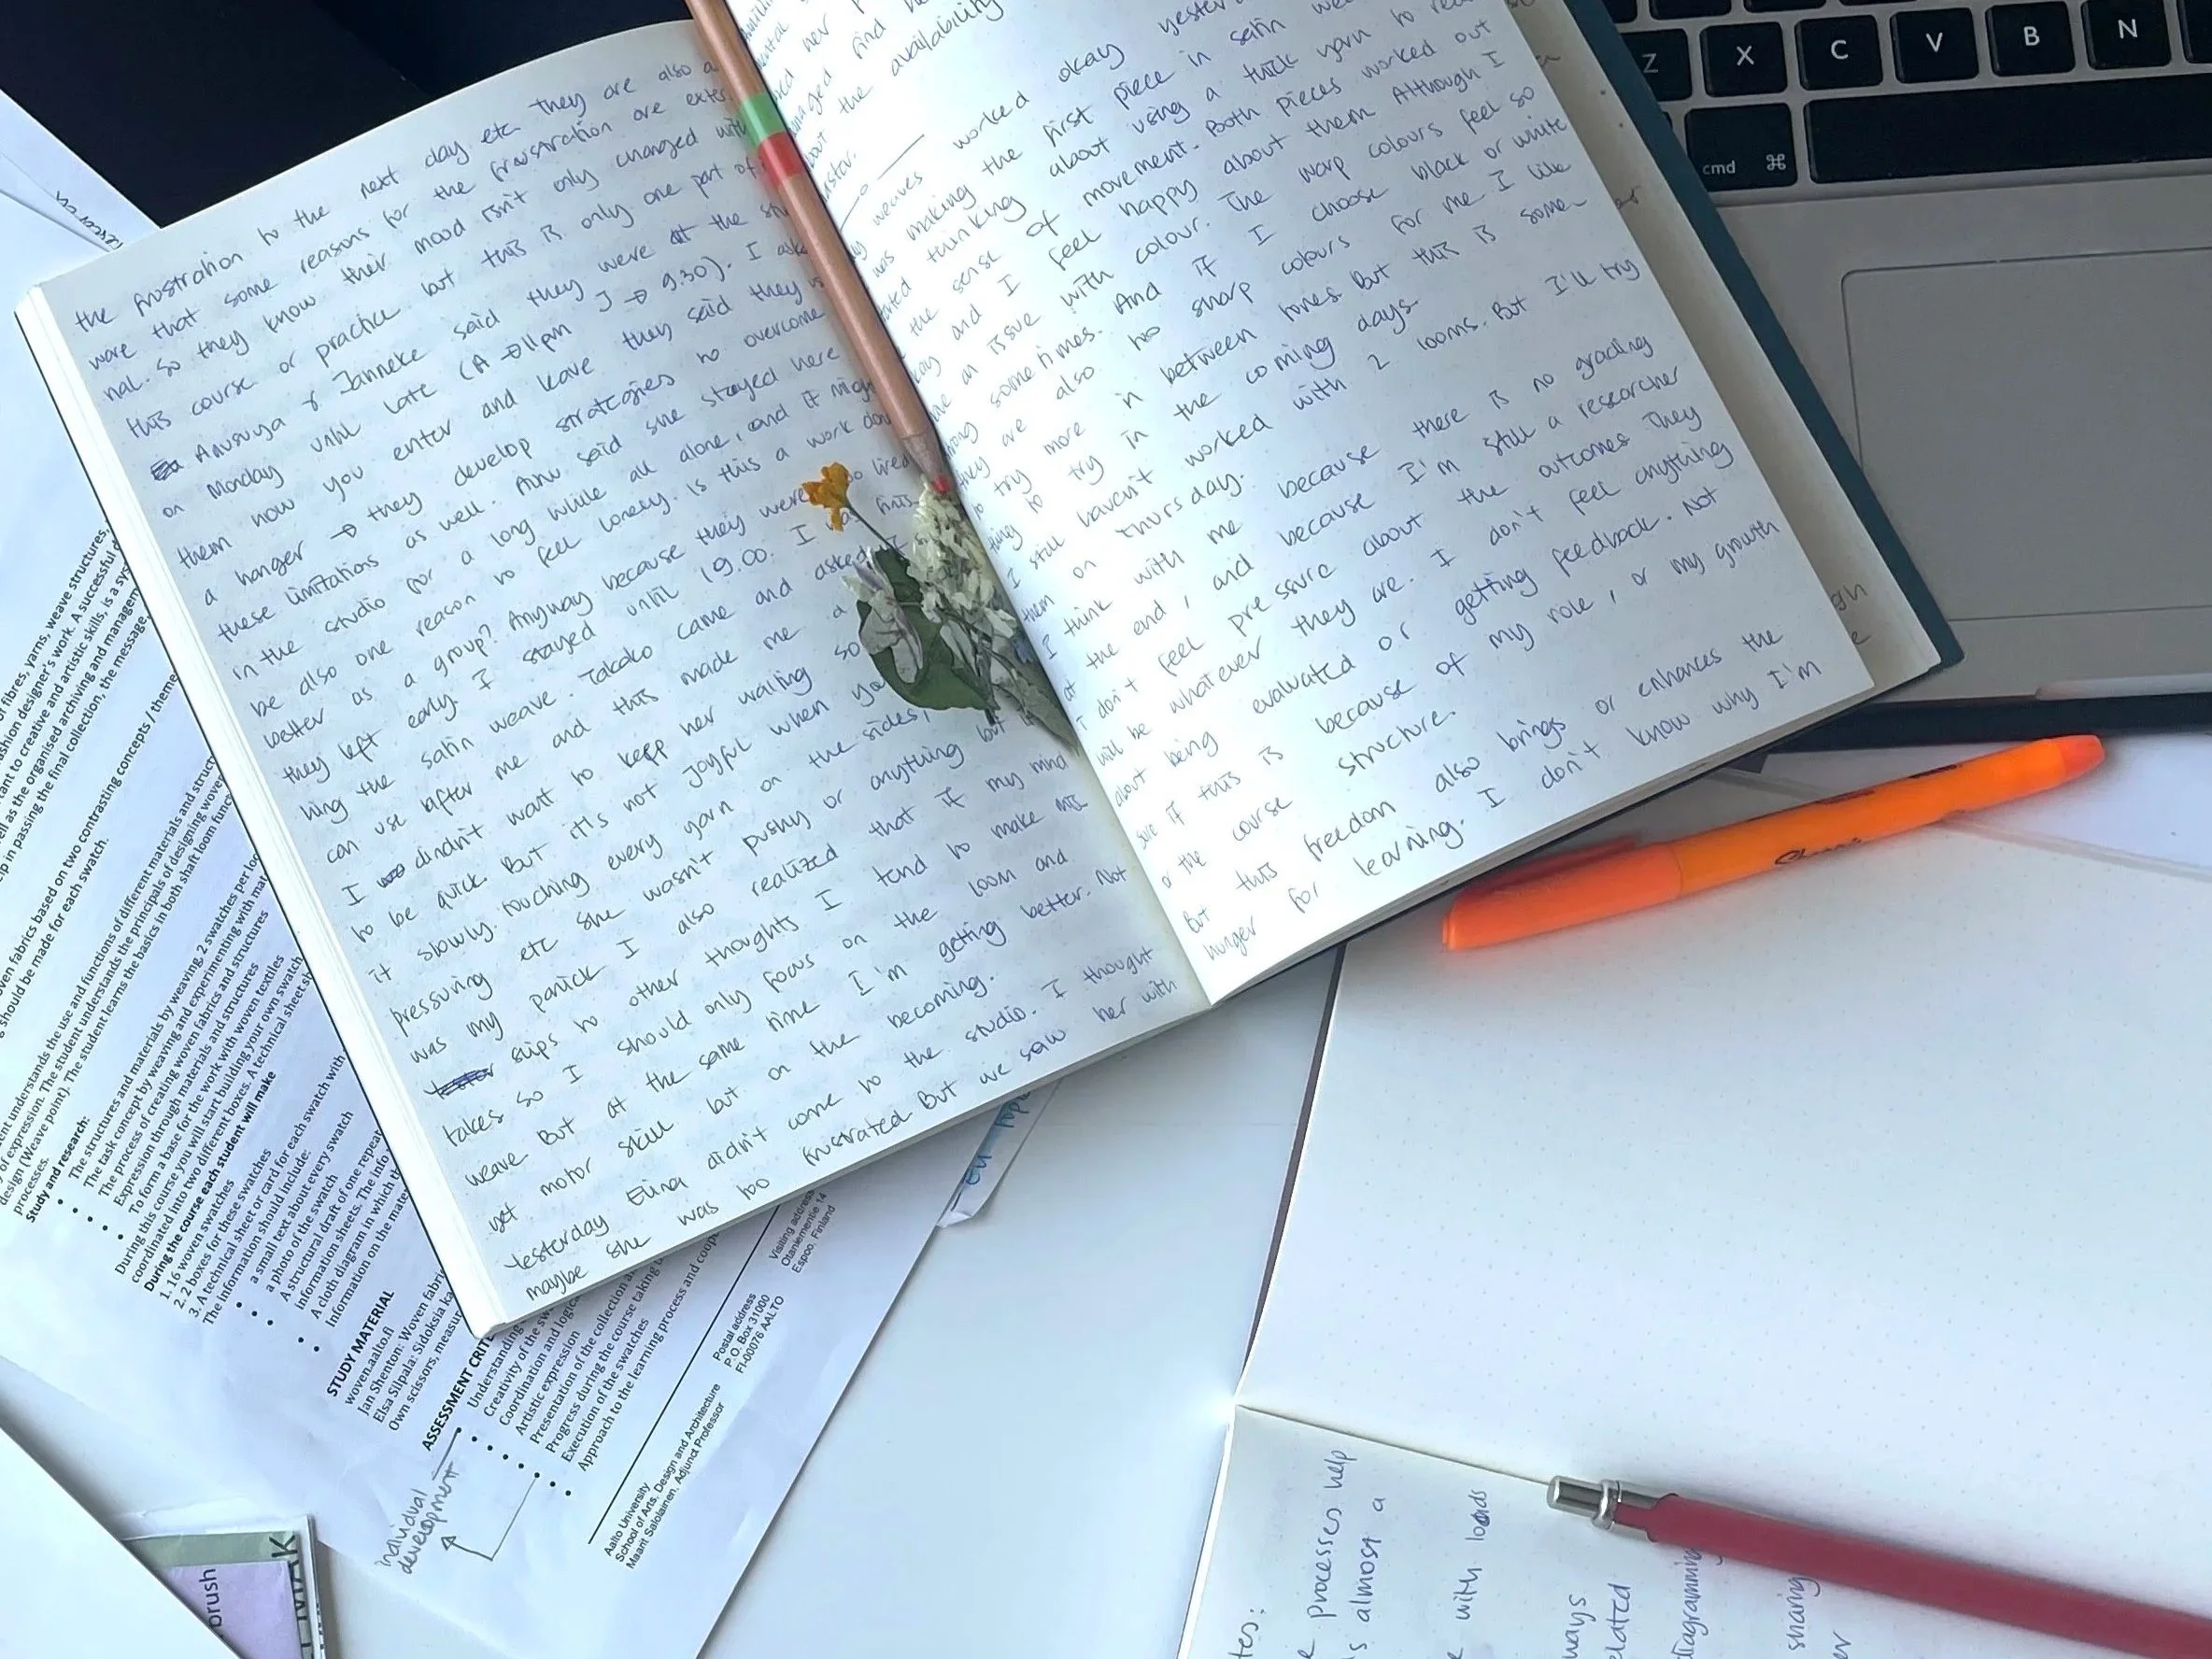 the frustration to the next day etc. They are also a
ware that some reasons for the frustration are exter
nal. So they know their mood isn't only changed with
this course or practice but this is only one part of
Anusuya & Janneke said they were at the
on Monday until late (A → 11pm J → 9.30). I aske
them how you enter and leave they said they
a hanger → they develop strategies to overcome
these limitations as well. Ainu said she stayed here
in the studio for a long while all alone, and it migh
be also one reason to feel lonely. Is this a work
better as a group? Anyway because they were too tired
they left early. I stayed until 19.00. I was
hing the satin weave. Takako came and asked I
can use after me and this made me a
I didn't want to keep her waiting so
to be quick. But it's not joyful when you
it slowly. touching every yarn on the sides,
pressuring etc she wasn't pushy or anything but
was my panick I also realized that if my mind
slips to other thoughts I tend to make mis
takes so I should only focus on the loom and
weave But at the same time I'm getting better. Not
yet motor skill but on the becoming.
Yesterday Elina didn't come to the studio. I thought
maybe she was too frustrated But we saw her with
her
find
about the availability
weaves worked okay yester
was making the first piece in satin
thinking about using a thick yarn to
the sense of movement. Both pieces worked out
okay and I feel happy about them Although I
an issue with colour. The warp colours feel so
sometimes. And if I choose black or white
they are also too sharp colours for me I like
to try more in between tones. But this is some-
thing to try in the coming days.
I still haven't worked with 2 looms. But I'll try
them on Thursday.
I think with me because there is no grading
at the end, and because I'm still a researcher
I don't feel pressure about the outcomes They
will be whatever they are. I don't feel anything
about being evaluated or getting feedback. Not
sure if this is because of my role, or my growth
or the course structure.
But this freedom also brings or enhances the
hunger for learning. I don't know why I'm
Z X C V B N
cmd ⌘
of fibres, yarns, weave structures,
fashion designer's work. A successful
ant to creative and artistic skills, is a
ell as the organised archiving and
elp in passing the final collection, the message,
oven fabrics based on two contrasting concepts / theme
g should be made for each swatch.
ent understands the use and functions of different materials and struct
of expression. The student understands the principals of designing wove
design (Weave point). The student learns the basics in both shaft loom func
processes.
Study and research:
• The structures and materials by weaving, 2 swatches per
• The task concept by weaving and experimenting with mat
• The process of creating woven fabrics and structures
• Expression through materials and structures
• To form a base for the work with woven textiles
During this course you will start building your own swatch
coordinated into two different boxes. A technical sheet
During the course each student will make
1. 16 woven swatches
2. 2 boxes for these swatches
3. A technical sheet or card for each swatch with
The information should include:
• a small text about every swatch
• a photo of the swatch
• A structural draft of one repeat
information sheets. The info
• A cloth diagram in which
• Information on the mate
STUDY MATERIAL
woven.aalto.fi
Jan Shenton: Woven fabric
Elsa Silpala: Sidoksia ka
Own scissors, measur
ASSESSMENT CRITE
• Understanding
• Creativity of the sw
• Coordination and logic
• Artistic expression
• Presentation of the collection
• Progress during the course taking
• Execution of the swatches
• Approach to the learning process and coop
individual
development
Aalto University
School of Arts, Design and Architecture
Maarit Salolainen, Adjunct Professor
Postal address
P.O. Box 31000
FI-00076 AALTO
Visiting address
Otaniementie 14
Espoo, Finland
Sharpie
processes help
almost a
with loads
ways
related
diagramming
sharing
brush